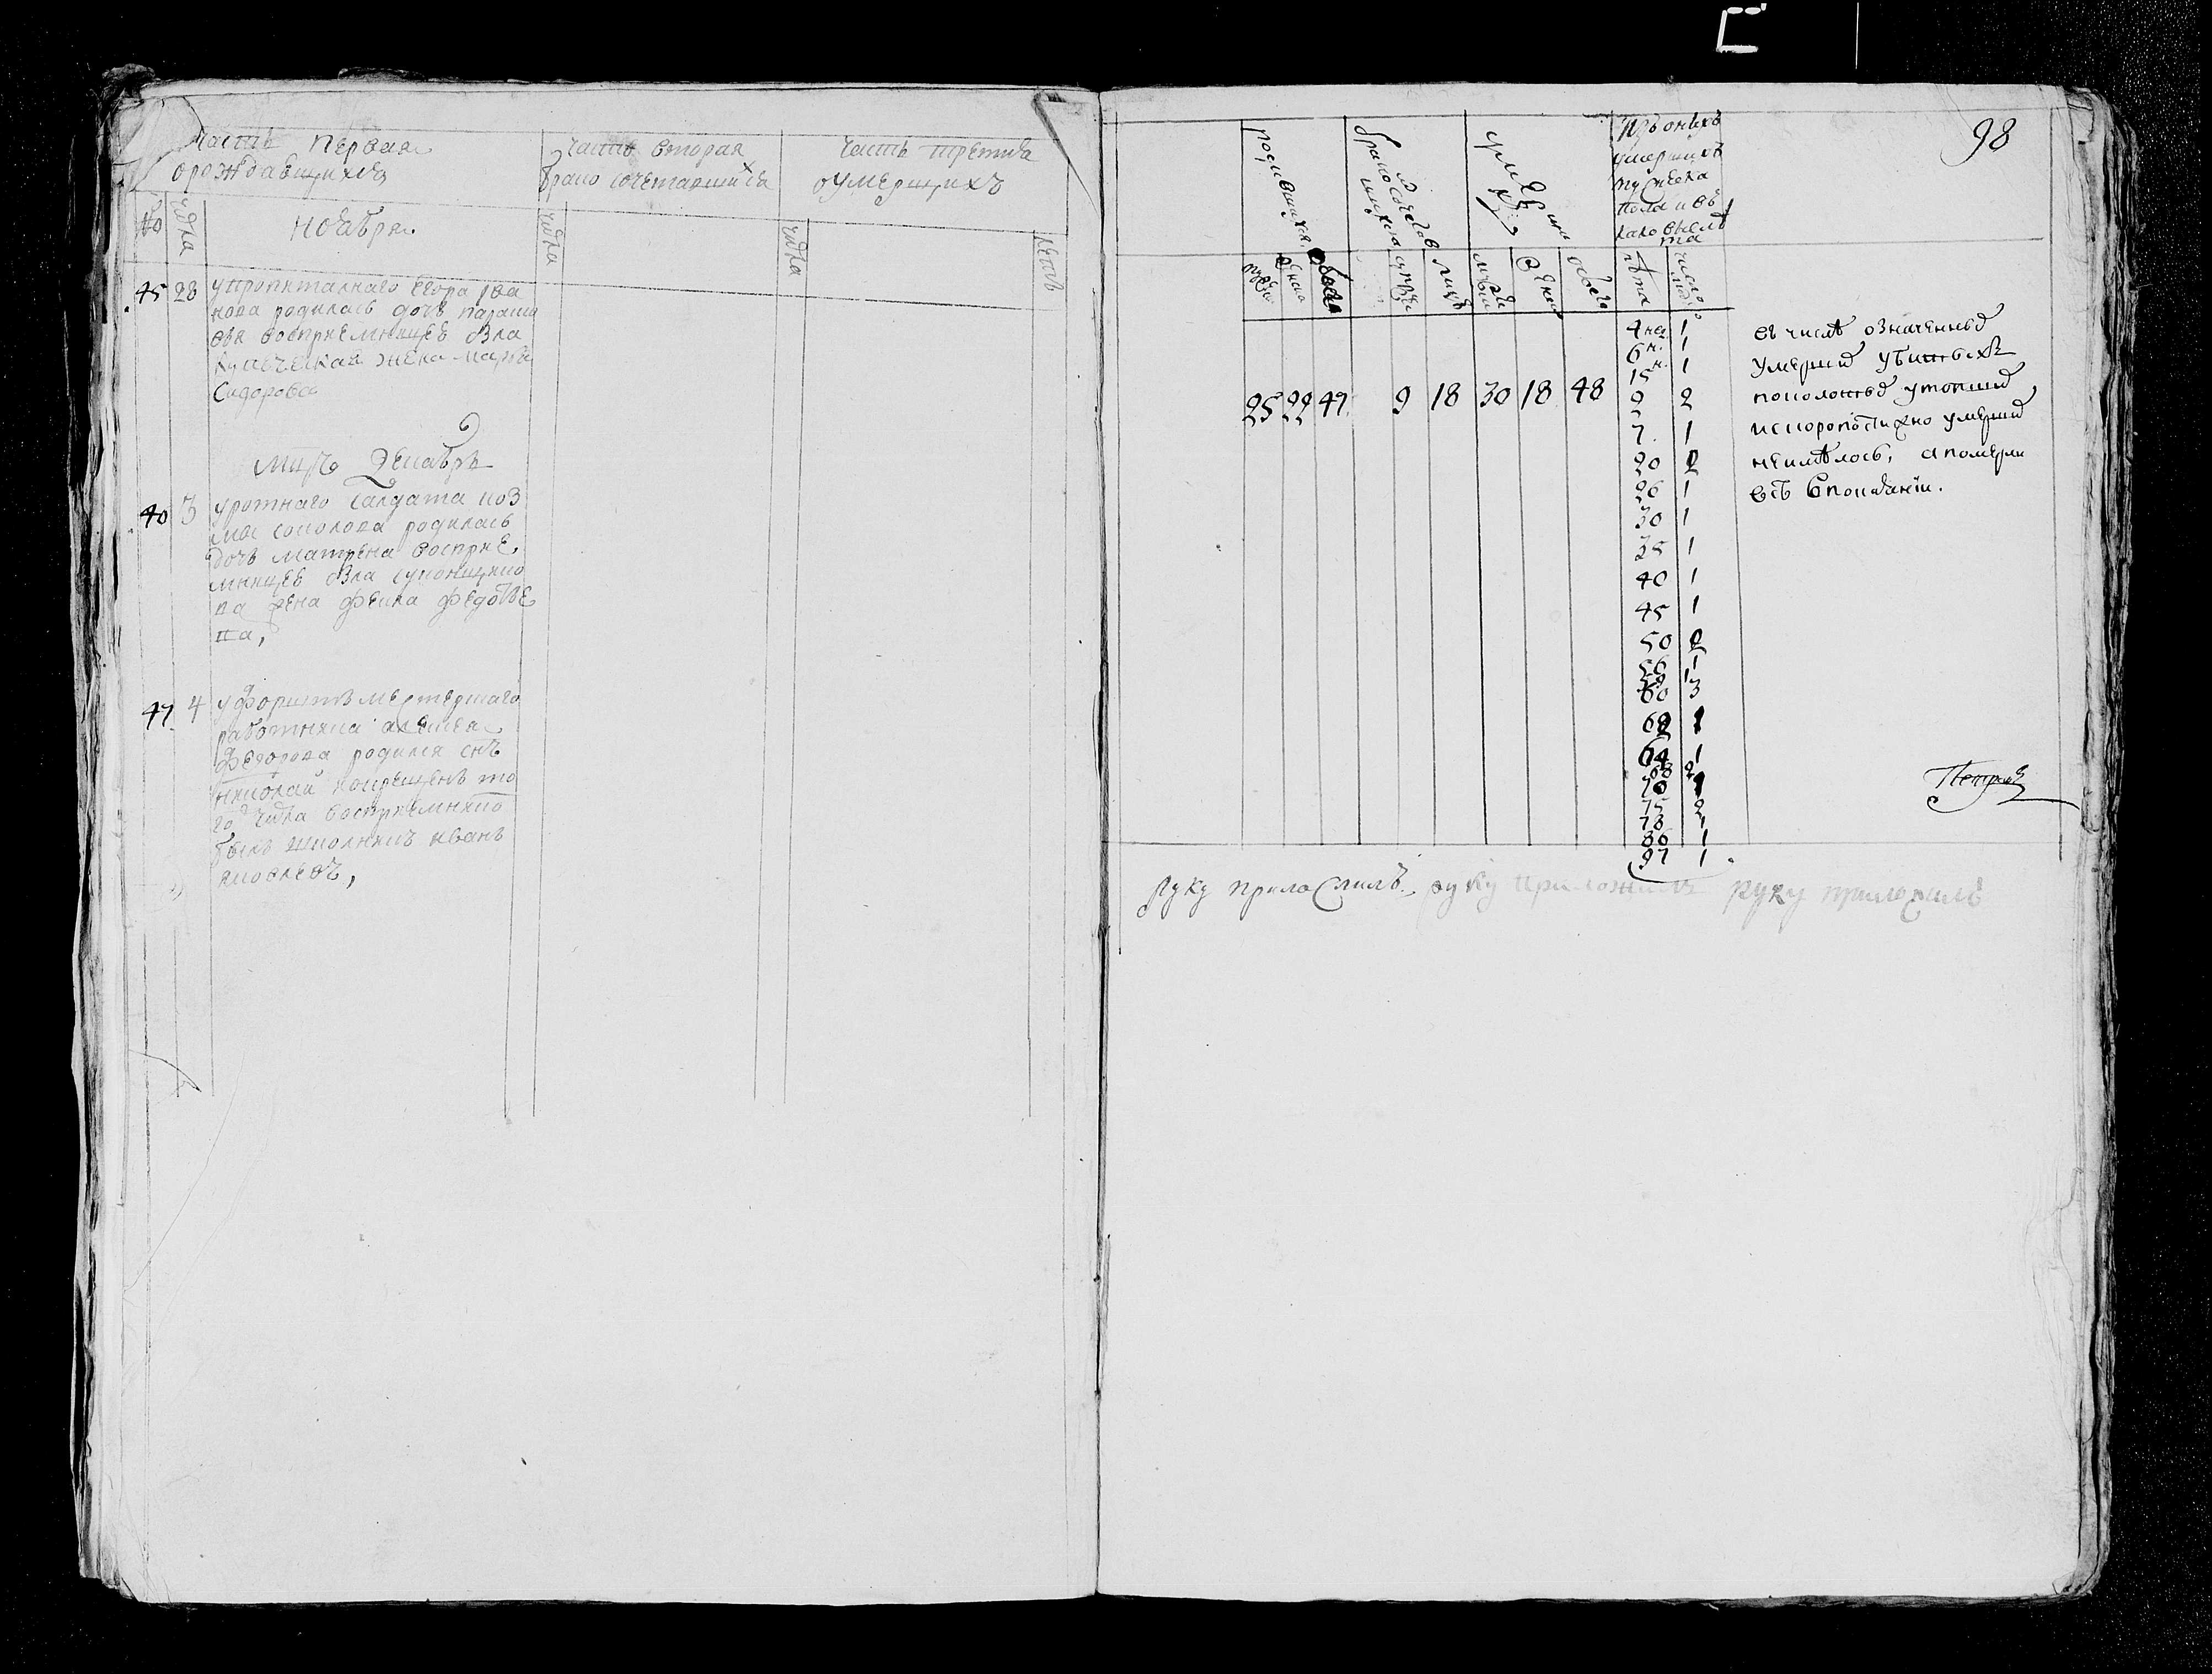 Часть первая
о рождающихся
Часть вторая
брако сочетавшихся
Часть третия
о умерших
№
числа
ноября
числа
числа
лета
45 28 у пропиталнаго егора ива
нова родилась дочь параско
вья восприемницею была
купеческая жена марфа
Сидорова
мцъ Декабрь
46 3 у ротнаго салдата коз
мы соколова родилась
дочь матрена восприе
мницею была
жена фекла федотье
на,
47 4
работника алексея
Федорова родился снъ
николай крещенъ то
го числа восприемнико
былъ школникъ иванъ
яковлевъ,
98
родившихся
брако сочетав
шихся
умерши
хъ
Изъ онихъ
умершихъ
мужеска
пола и въ
каковы лѣ
та
мужеска
женска
обоего
лицъ
женска
обоего
лѣта
число
25 22 47 9 18 30 18 48
4 не 1
6 н. 1
15 н. 1
9 2
7. 1
20 2
26 1
30 1
35 1
40 1
45 1
50 2
56 1
60 3
64 1
68 2
70
75 2
78 1
86 1
97 1
въ числѣ означенныхъ
умершихъ убитыхъ
поколотыхъ утопших
и скоропостижно умерших
неимѣлось, а померли
всѣ в покаянии.
Петровъ
руку приложилъ руку приложилъ руку приложилъ